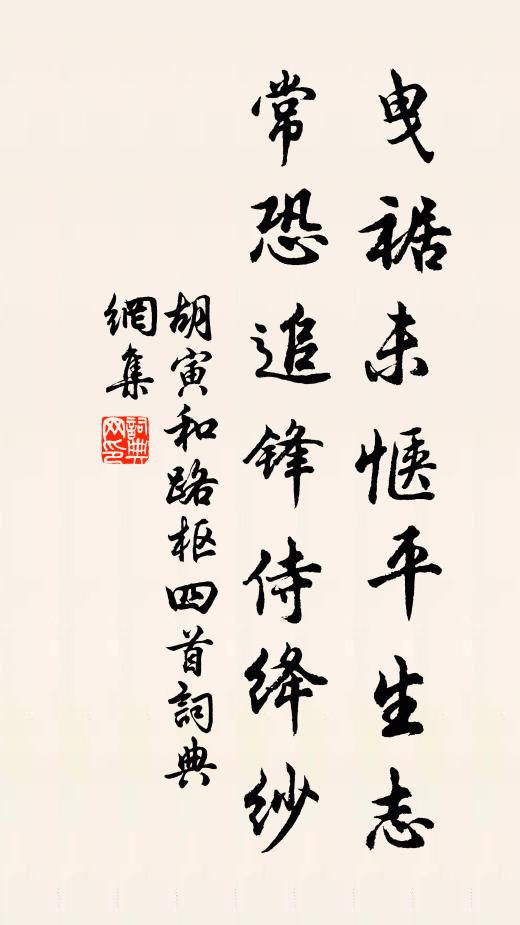 曳裾未惬平生志
常恐追锋侍绛纱
胡寅和路枢四首詞典
網集
詞典網印